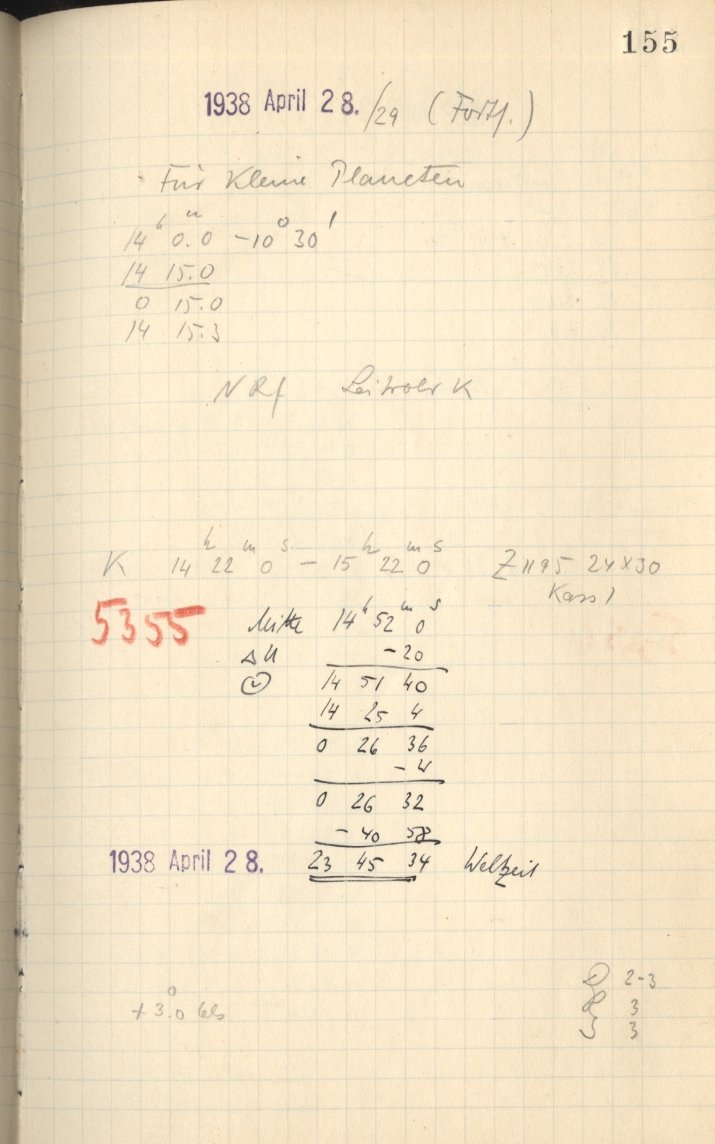 155
1938 April 28./29 (Fortf.)
Für Kleine Planeten
14ʰ 0.0ᵐ −10° 30'
14 15.0
0 15.0
14 15.3
NRf K
K 14ʰ 22ᵐ 0ˢ − 15ʰ 22ᵐ 0ˢ Z 1195 24x30
Kass 1
5355 Mitte 14ʰ 52ᵐ 0ˢ
ΔU −20
14 51 40
14 25 4
0 26 36
−4
0 26 32
−40 58
1938 April 28. 23 45 34 Weltzeit
D 2-3
+3.0°
R 3
S 3